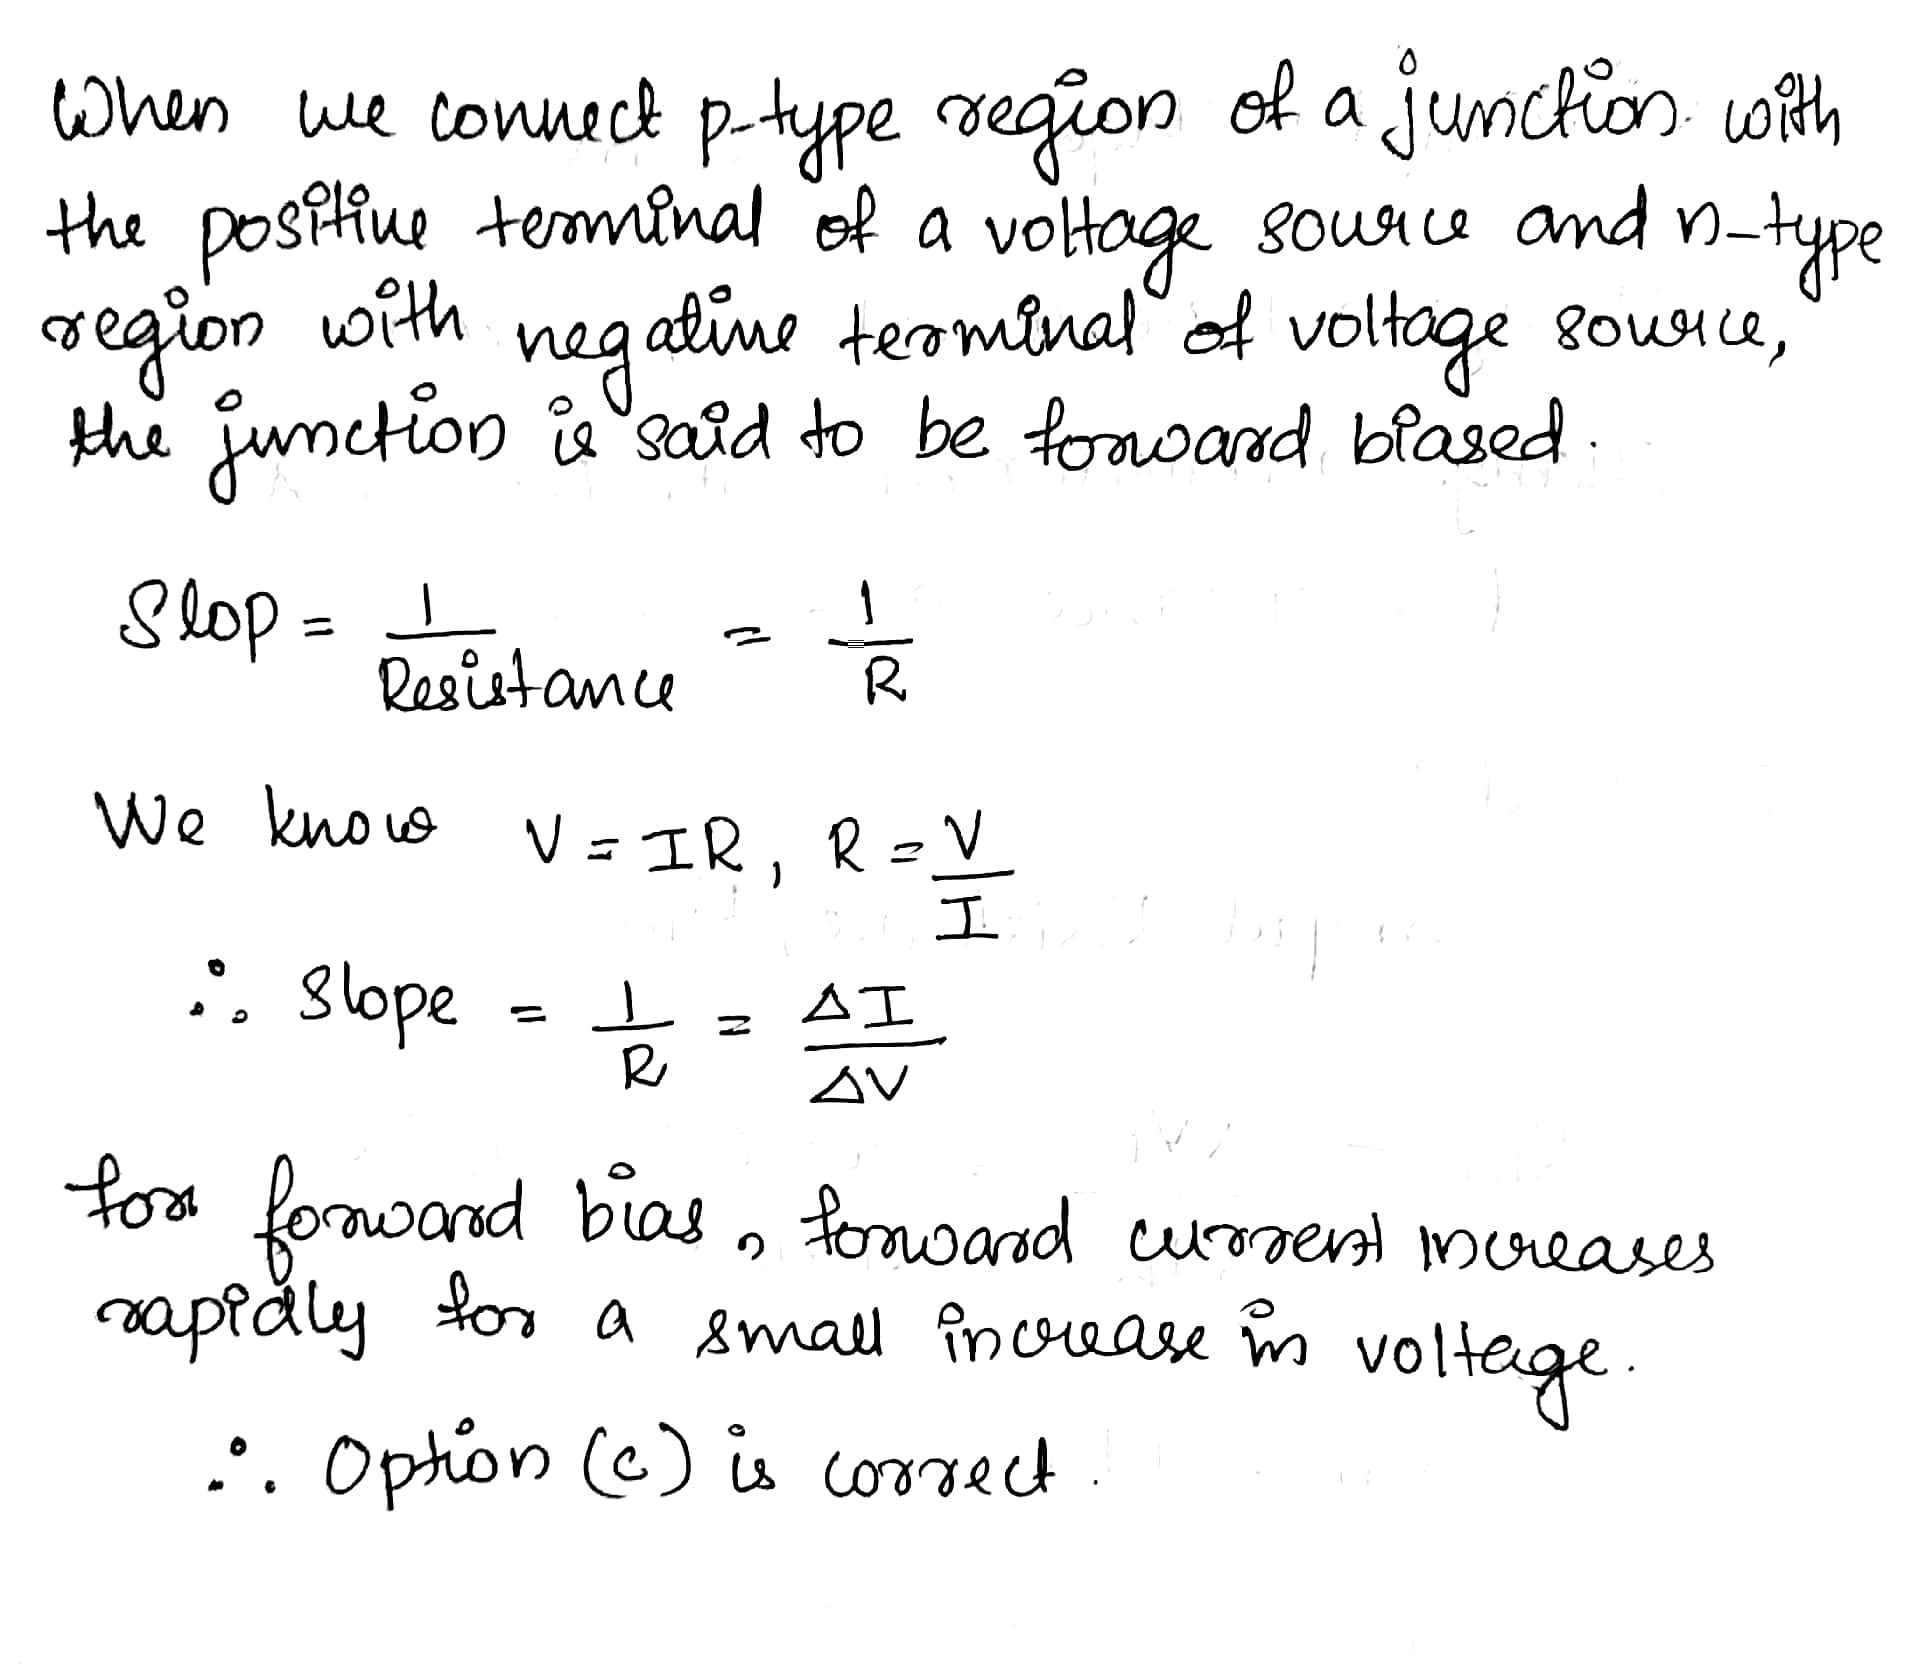 When we connect p-type region of a junction with
the positive terminal of a voltage source and n-type
region with negative terminal of voltage source,
the junction is said to be forward biased.
Slop = 1/Resistance = 1/R
We know V = IR, R = V/I
∴ Slope = 1/R = ΔI/ΔV
for forward bias, forward current increases
rapidly for a small increase in voltage.
∴ Option (c) is correct.